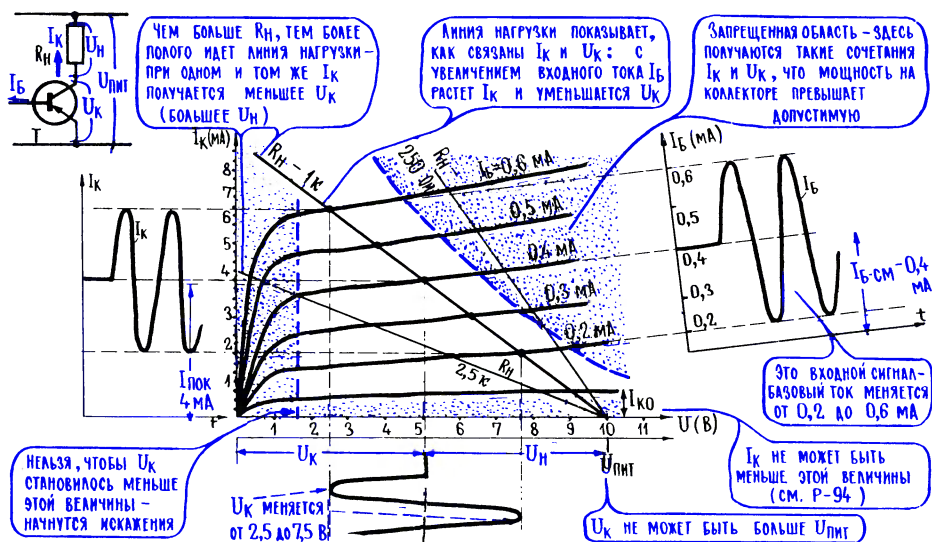 Iк
Rн
Uн
Uпит
Iб
Uк
Т
Чем больше Rн, тем более
полого идет линия нагрузки-
при одном и том же Iк
получается меньшее Uк
(большее Uн)
Линия нагрузки показывает,
как связаны Iк и Uк: с
увеличением входного тока Iб
растет Iк и уменьшается Uк
Запрещенная область - здесь
получаются такие сочетания
Iк и Uк, что мощность на
коллекторе превышает
допустимую
Iк
Iк
t
Iпок
4 мА
Iк(мА)
8
7
6
5
4
3
2
1
Rн - 1к
Rн -
250 Ом
Iб=0,6 мА
0,5 мА
0,4 мА
0,3 мА
0,2 мА
Rн
2,5 к
Iко
1 2 3 4 5 6 7 8 9 10 11 U(В)
Uк
Uн
Uпит
Iб(мА)
0,6
0,5
0,4
0,3
0,2
Iб
Iб·см-0,4
мА
t
Это входной сигнал-
базовый ток меняется
от 0,2 до 0,6 мА
Нельзя, чтобы Uк
становилось меньше
этой величины -
начнутся искажения
Uк меняется
от 2,5 до 7,5 В
Iк не может быть
меньше этой величины
(см. Р-94)
Uк не может быть больше Uпит